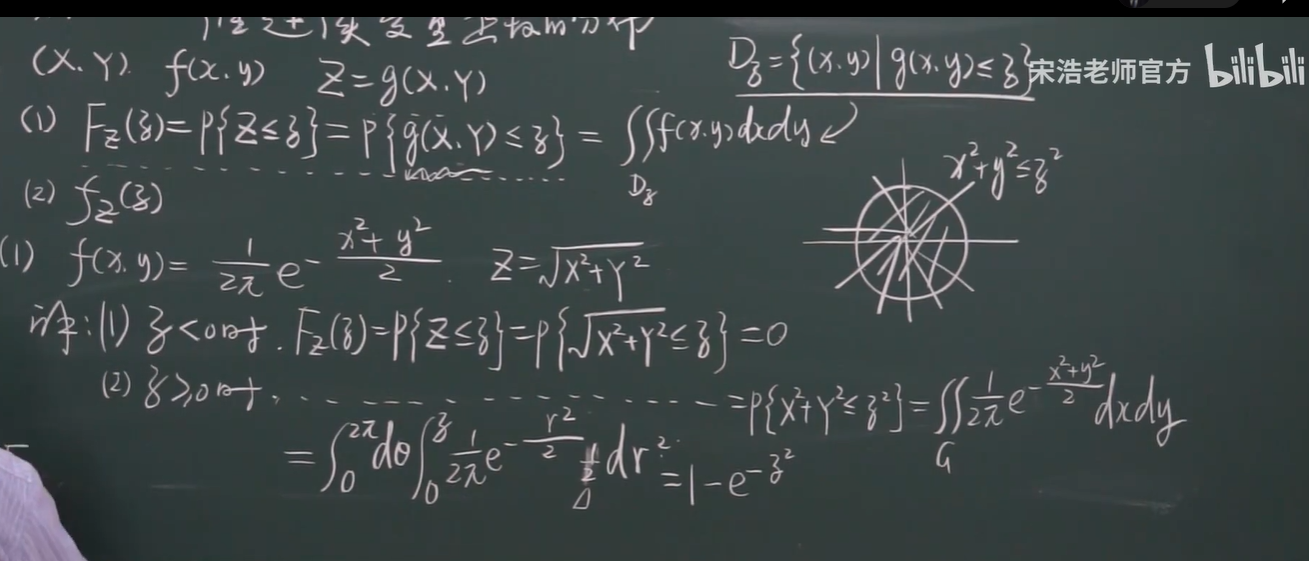 (X,Y) f(x,y) Z=g(X,Y)
D_z={(x,y)|g(x,y)≤z}
宋浩老师官方 bilibili
(1) F_Z(z)=P{Z≤z}=P{g(X,Y)≤z}=∬_{D_z} f(x,y)dxdy
x²+y²≤z²
(2) f_Z(z)
(1) f(x,y)=\frac{1}{2π}e^{-\frac{x²+y²}{2}}. Z=\sqrt{X²+Y²}
解:(1) z<0时. F_Z(z)=P{Z≤z}=P{\sqrt{X²+Y²}≤z}=0
(2) z≥0时. - - - - - =P{X²+Y²≤z²}=∬_G \frac{1}{2π}e^{-\frac{x²+y²}{2}}dxdy
=∫_0^{2π}dθ∫_0^z \frac{1}{2π}e^{-\frac{r²}{2}}\frac{1}{2}dr²=1-e^{-z²}